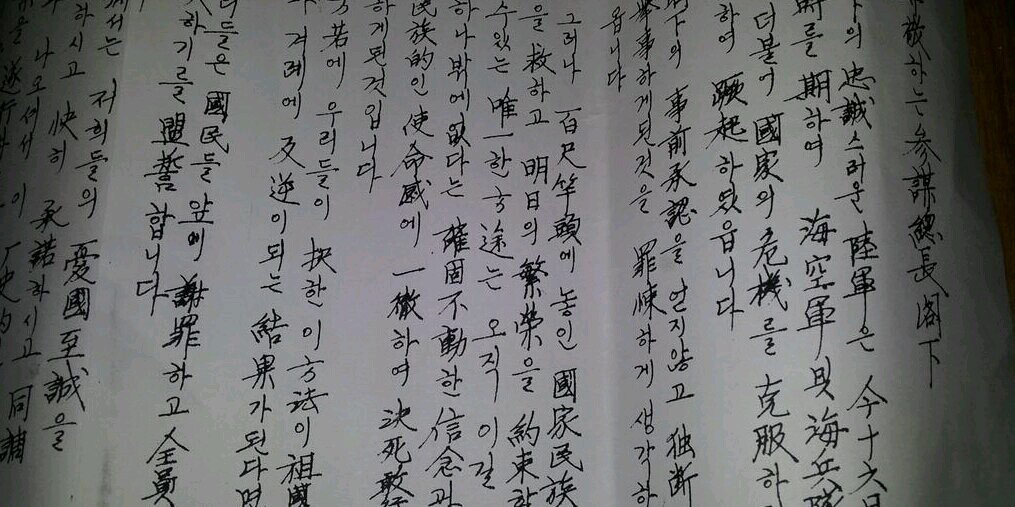 敬하는 参謀總長 閣下
下의 忠誠스러운 陸軍은 今十六日
時를 期하여 海空軍 및 海兵隊
더불어 國家의 危機를 克服하
하여 蹶起하였읍니다
閣下의 事前承認을 얻지않고 独断
擧事하게된것을 罪悚하게 생각하
읍니다
그러나 百尺竿頭에 놓인 國家民族
을 救하고 明日의 繁榮을 約束할
수있는 唯一한 方途는 오직 이길
하나밖에 없다는 確固不動한 信念과
民族的인 使命感에 一徹하여 決死敢行
하게된것입니다
若에 우리들이 抉한 이 方法이 祖國
겨레에 反逆이 되는 結果가 된다면
들은 國民들 앞에 謝罪하고 全員
하기를 盟誓합니다
께서는 저희들의 憂國至誠을
하시고 快히 承諾하시고 同調
나오셔서 이
을 遂行